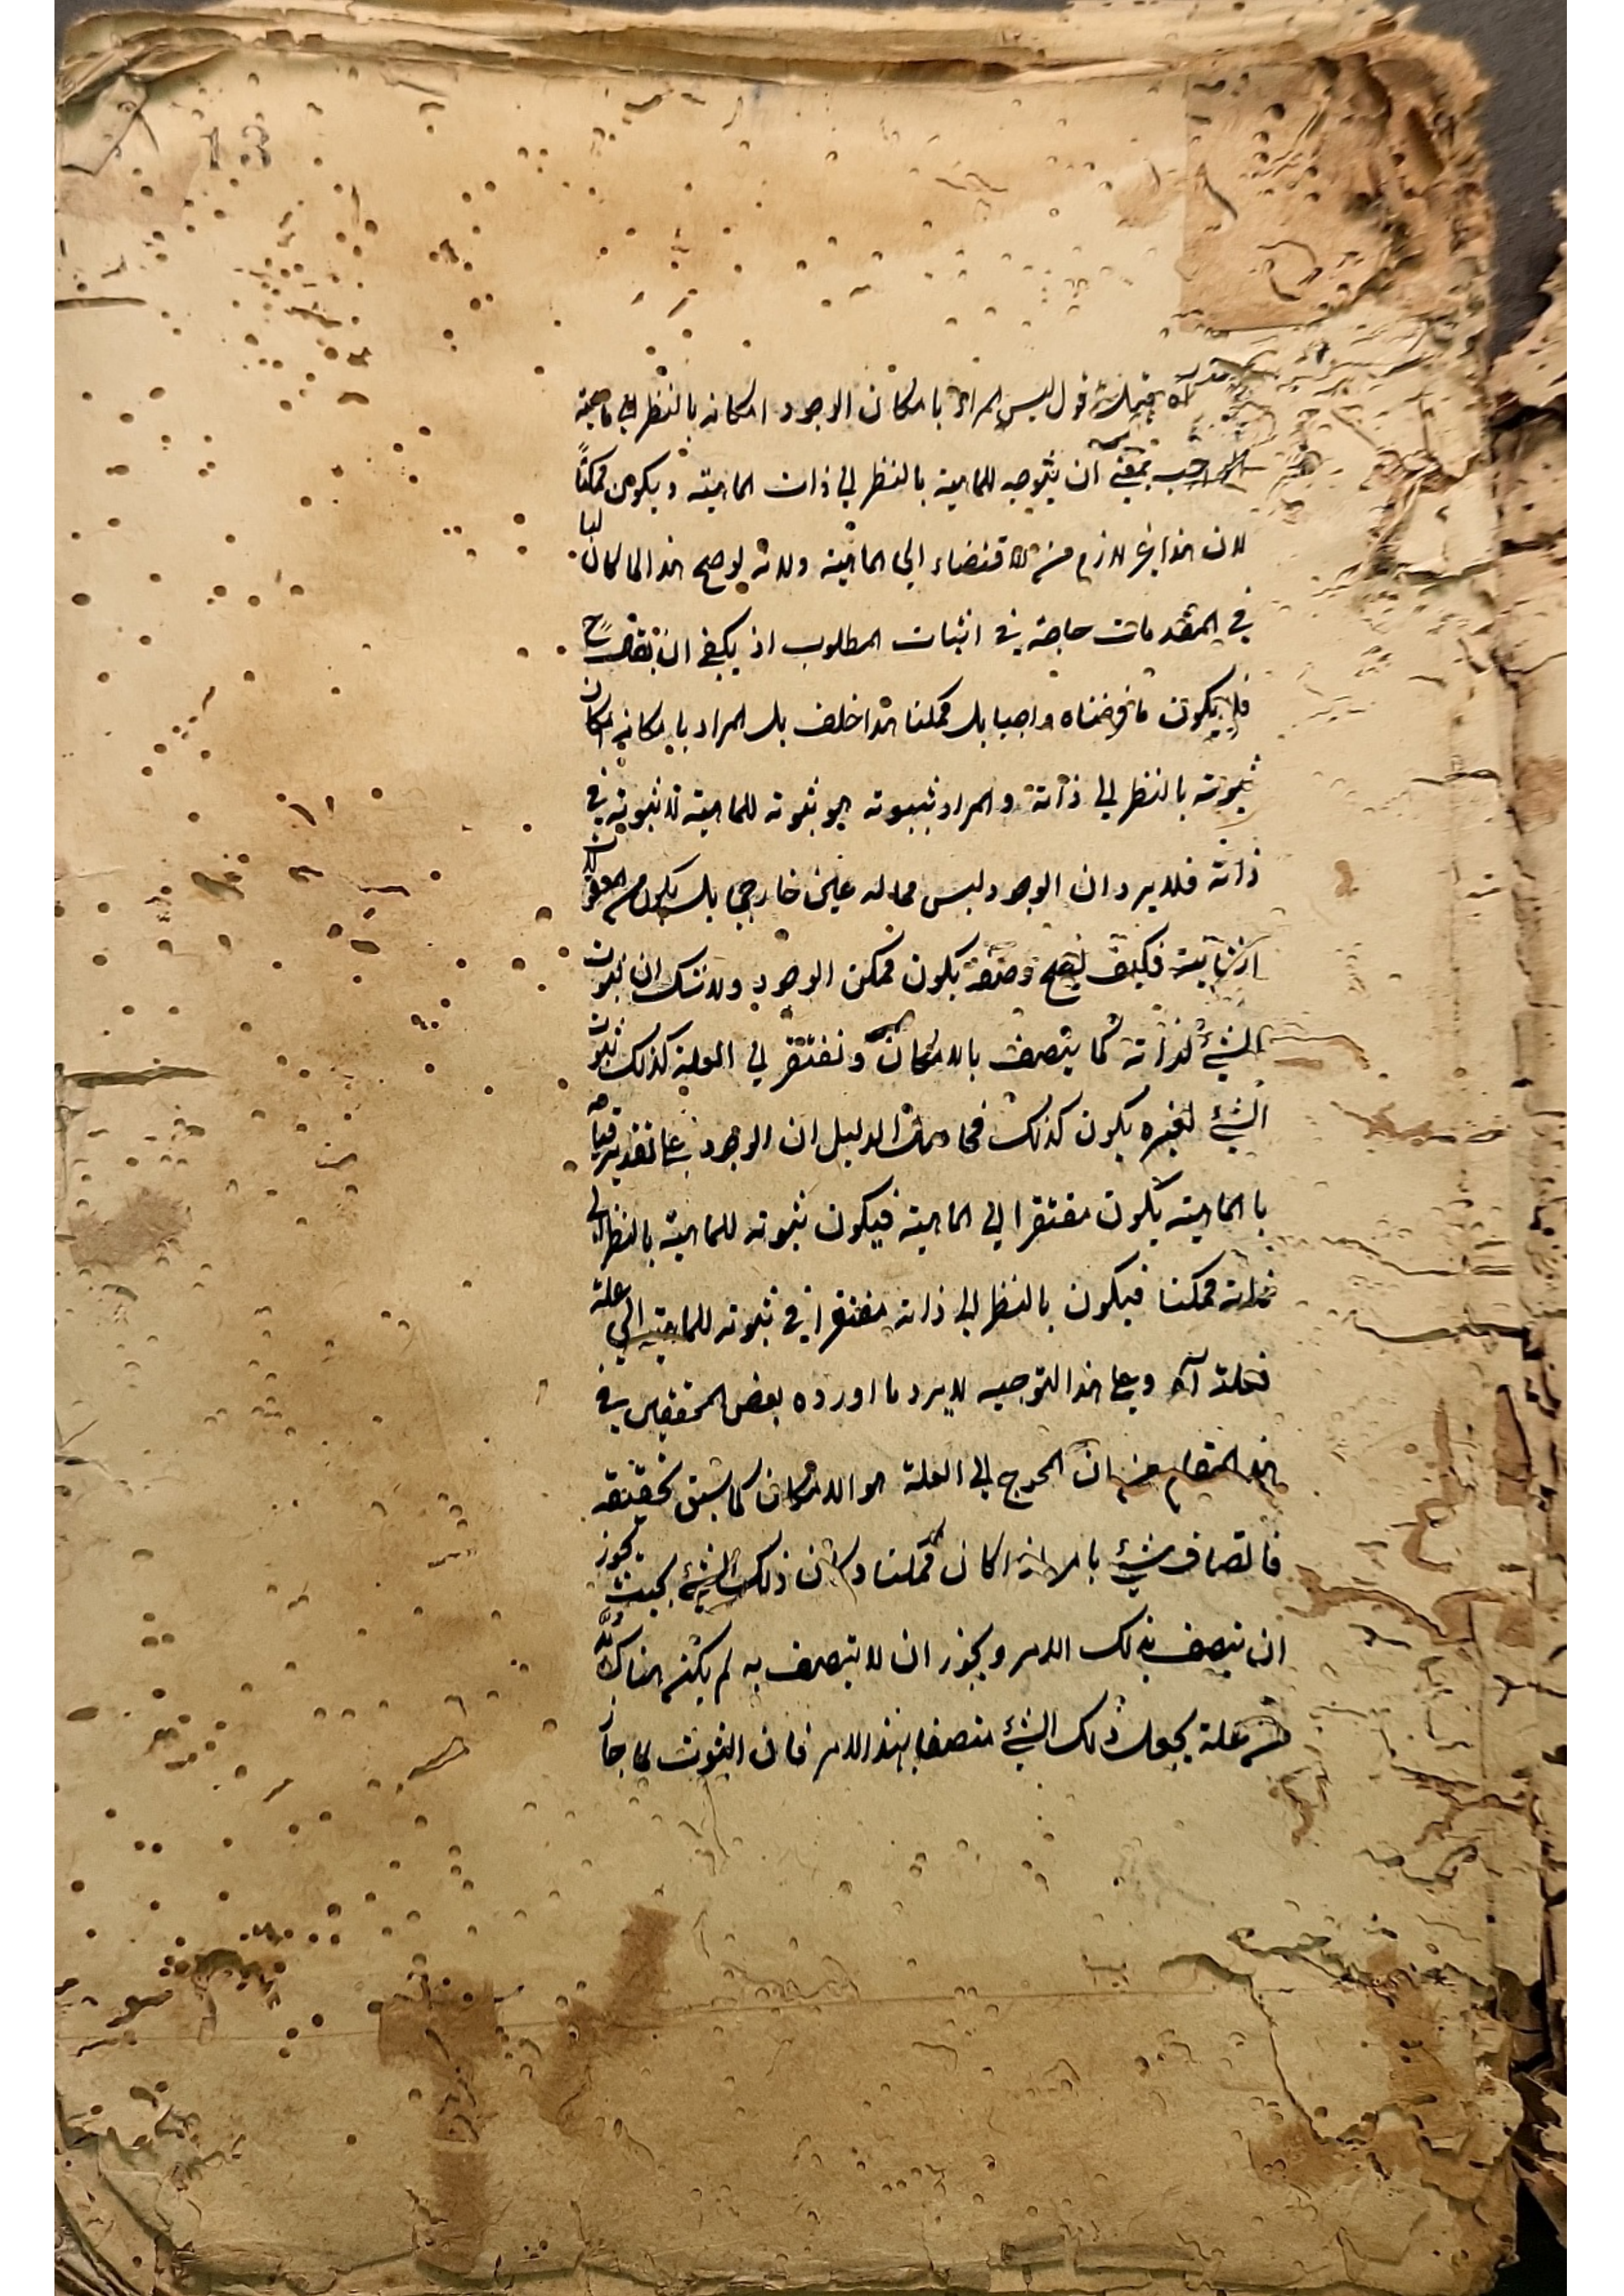 13
آه فيمكن قول ليس المراد بامكان الوجود امكانه بالنظر الى ماهية
الواجب بمعنى ان يتوجه للماهية بالنظر الى ذات الماهية ويكون ممكنا
لان هذا غير لازم من الاقتضاء الى الماهية ولانه لو صح هذا لما كان لها
في المقدمات حاجة في اثبات المطلوب اذ يكفي ان يقال ح
فلا يكون ما فرضناه واجبا بل ممكنا هذا خلف بل المراد بامكانه امكان
ثبوته بالنظر الى ذاته والمراد بثبوته هو ثبوته للماهية لا ثبوته في
ذاته فلا يرد ان الوجود ليس مما له عين خارجي بل يكون من المعقولات
الثانية فكيف يصح وصفه بكون ممكن الوجود ولا شك ان ثبوت
الشيء لذاته كما يتصف بالامكان ويفتقر الى العلة كذلك ثبوت
الشيء لغيره يكون كذلك الدليل ان الوجود على تقدير قيامه
بالماهية يكون مفتقرا الى الماهية فيكون ثبوته للماهية بالنظر الى
ذاته ممكنا فيكون بالنظر الى ذاته مفتقرا في ثبوته للماهية الى علة
فعلته آه وعلى هذا التوجيه لا يرد ما اورده بعض المحققين في
هذا المقام من ان المحوج الى العلة هو الامكان كما سبق تحقيقه
فاتصاف شيء بالامر اذا كان ممكنا وكان ذلك الشيء بحيث يجوز
ان يتصف بذلك الامر ويجوز ان لا يتصف به لم يكن هناك بد
من علة يجعل ذلك الشيء متصفا بهذا الامر فان الثوب لما جاز